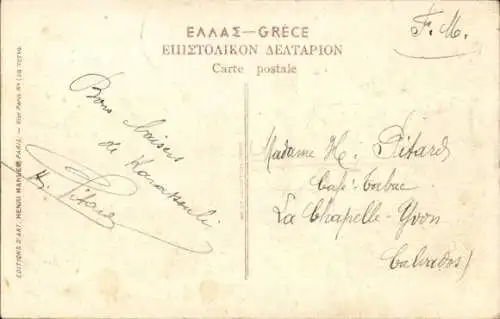 ΕΛΛΑΣ—GRÈCE
ΕΠΙΣΤΟΛΙΚΟΝ ΔΕΛΤΑΡΙΟΝ
Carte postale
F. M.
Bons baisers
de Karasouli
H. Pitard
Madame H. Pitard
Café-Tabac
La Chapelle-Yvon
Calvados)
EDITIONS D'ART, HENRI
PARIS